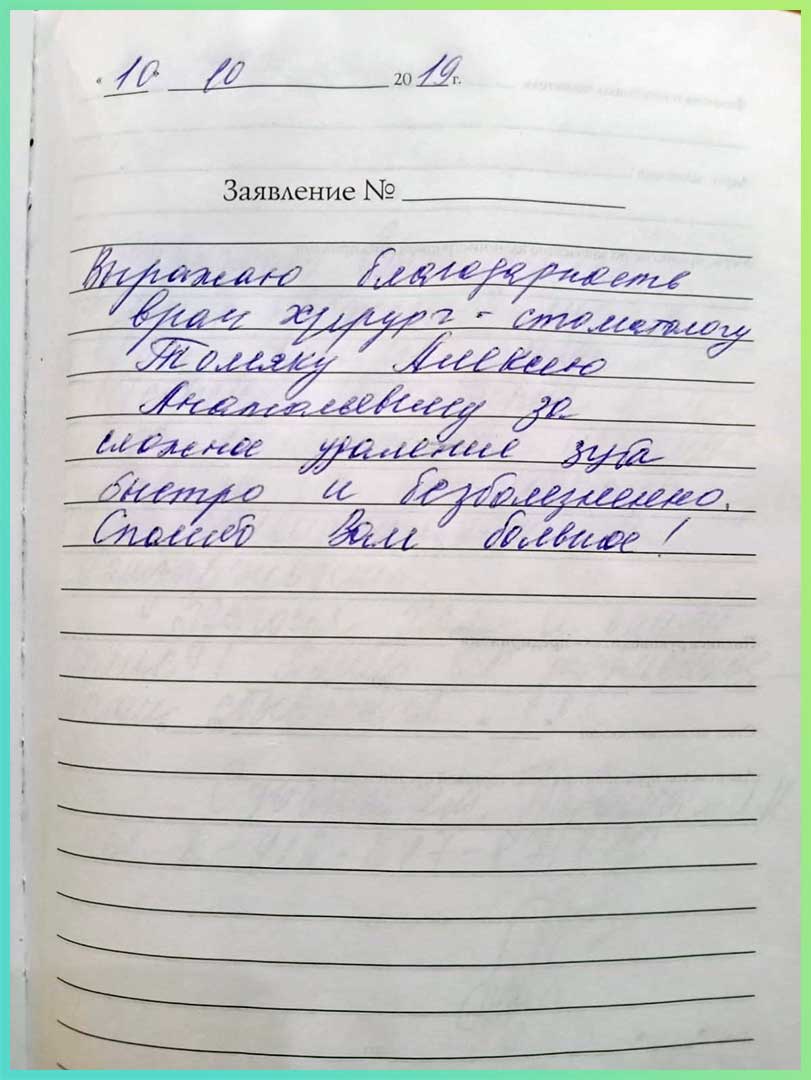 « 10 » 10 2019 г.
Заявление №
Выражаю благодарность
врач хирург - стоматологу
Томяку Алексею
Анатольевичу за
сложное удаление зуба
быстро и безболезненно.
Спасибо Вам большое!